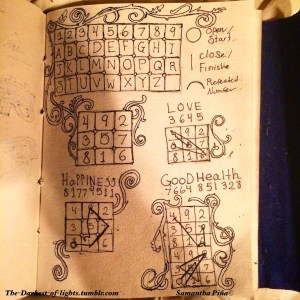 1 2 3 4 5 6 7 8 9
A B C D E F G H I
J K L M N O P Q R
S T U V W X Y Z
Open/
Start
Close/
Finishe
Repeated
Number
4 9 2
3 5 7
8 1 6
LOVE
3645
4 9 2
3 5 7
8 1 6
HAPPINESS
81774511
4 9 2
3 5 7
8 1 6
GOOD Health
7664 851328
4 9 2
3 5 7
8 1 6
The-Darkest-of-lights.tumblr.com
Samantha Piña